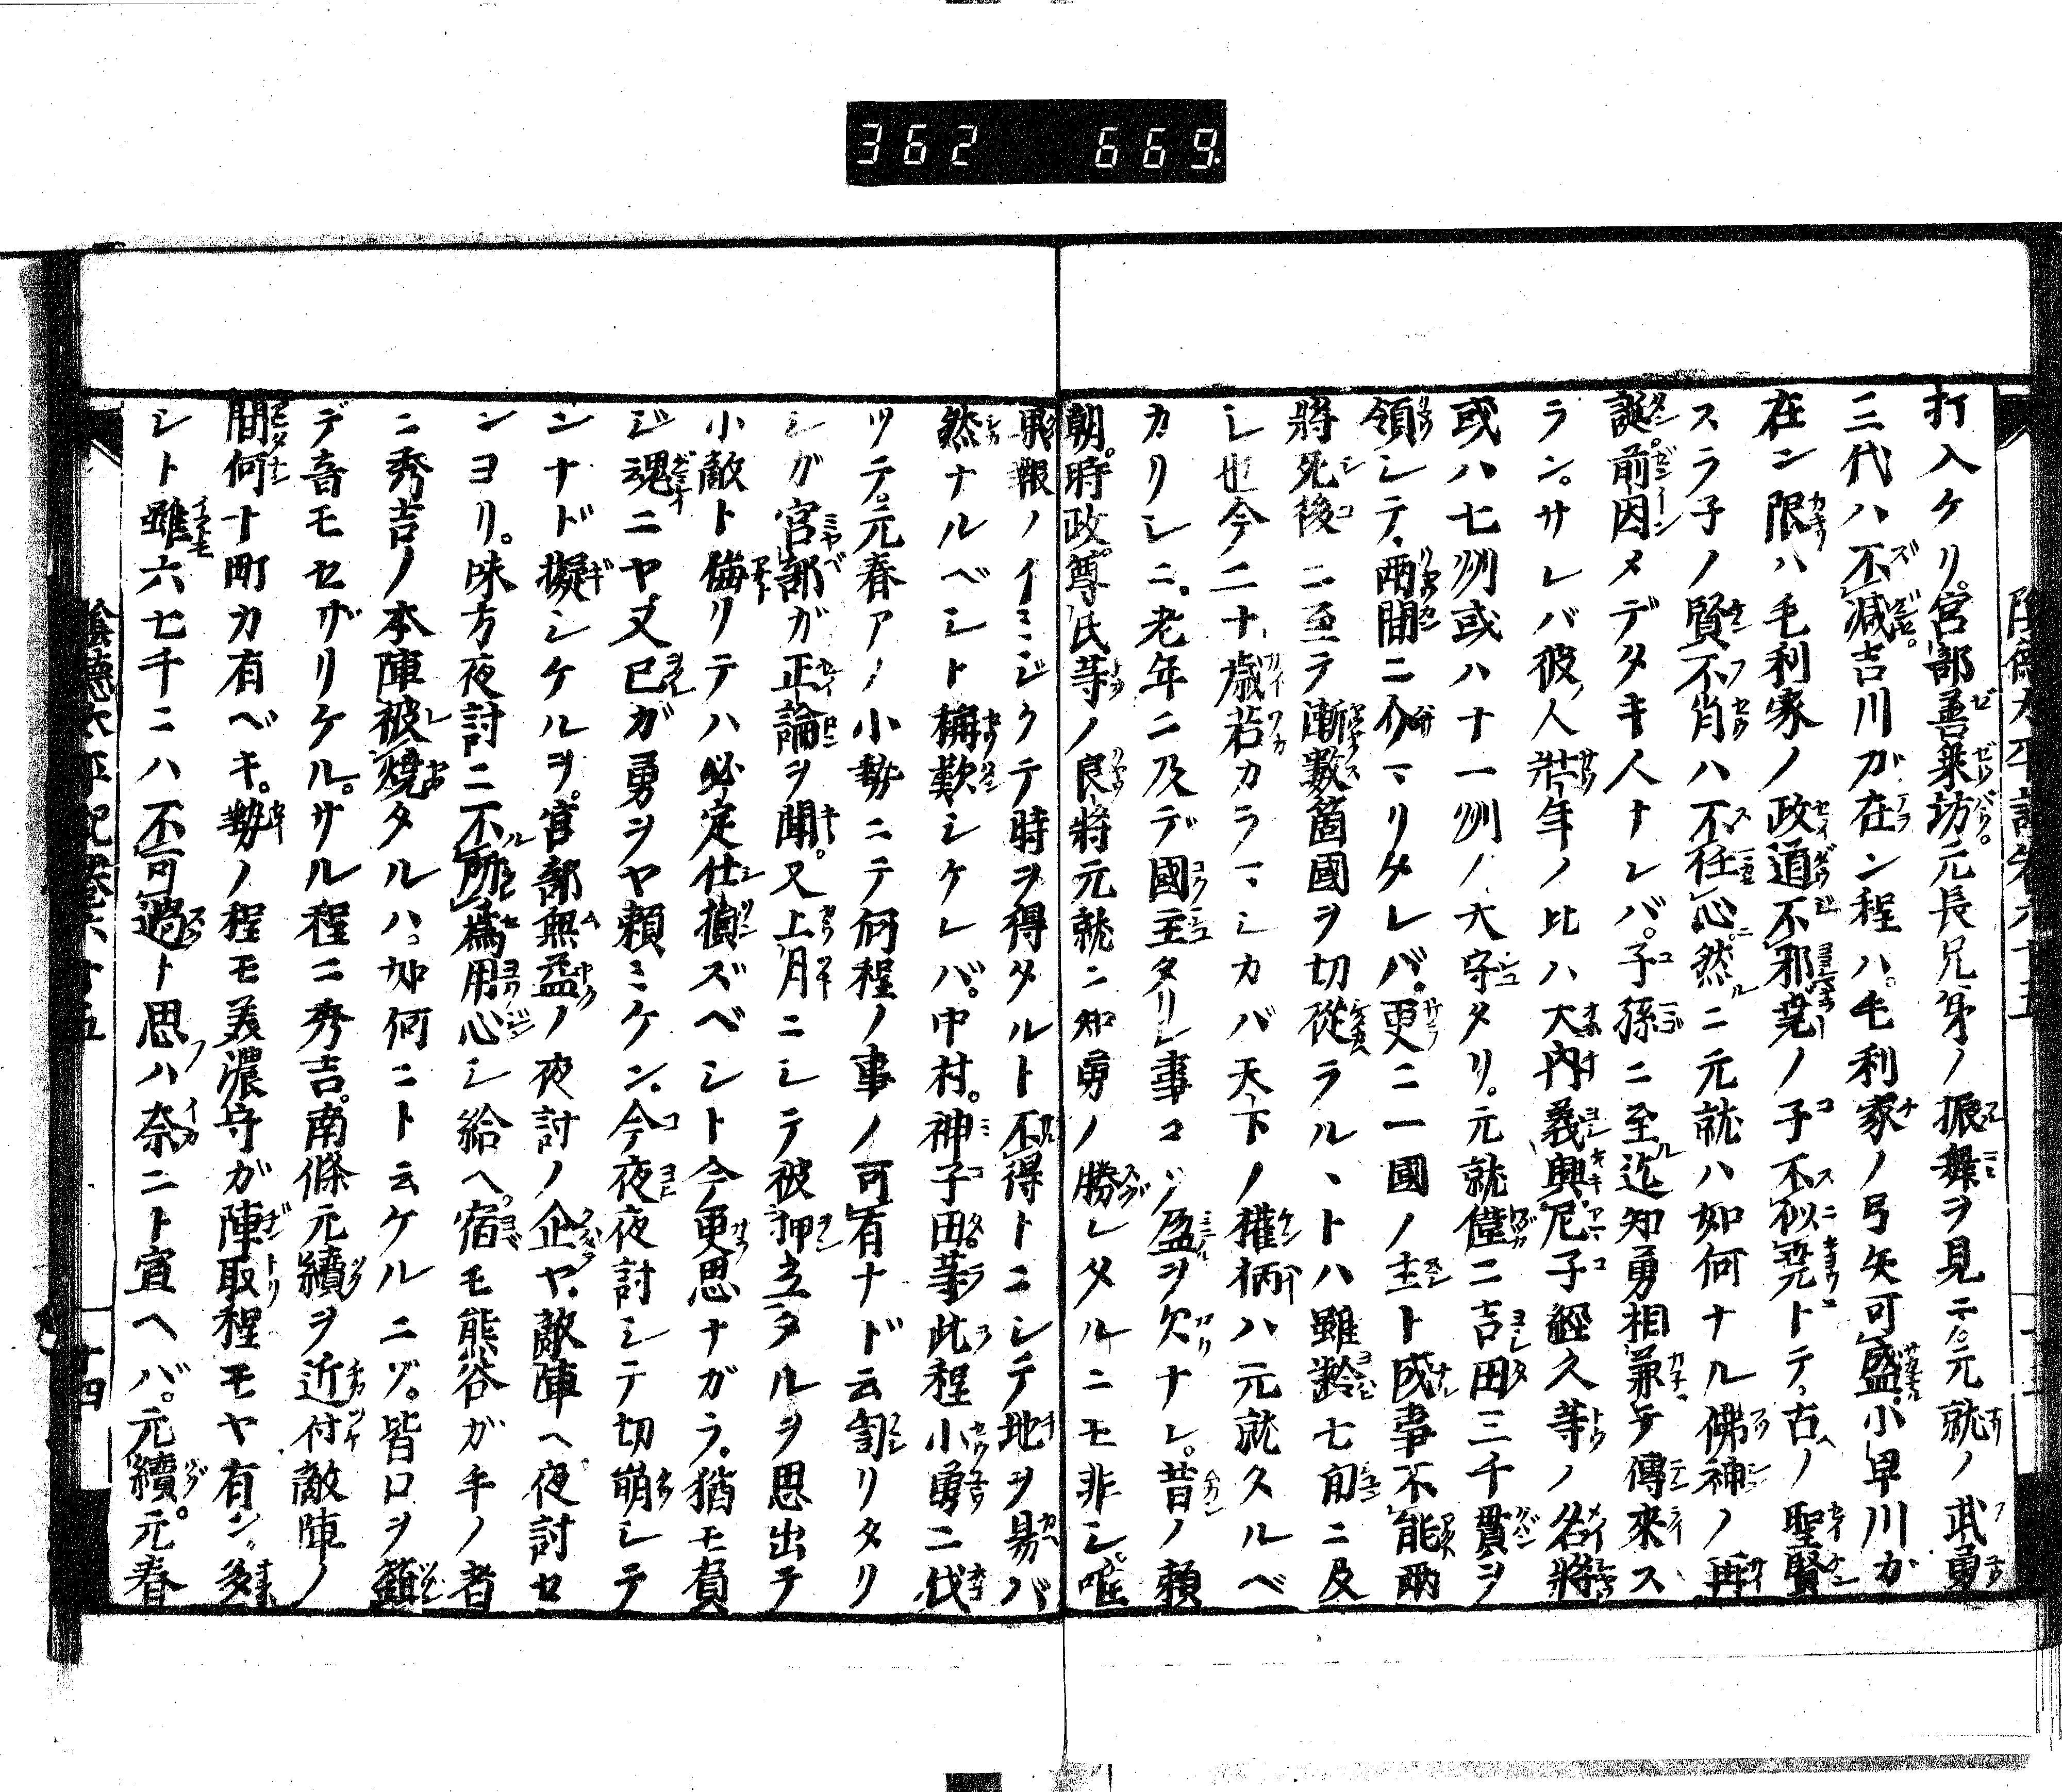 362 669
打入ケリ。宮部善乗坊。元長兄弟ノ振舞ヲ見テ。元就ノ武勇
三代ハ不減。吉川ガ在ン程ハ。毛利家ノ弓矢可盛。小早川ガ
在ン限ハ毛利家ノ政道不邪。堯ノ子不似堯トテ。古ノ聖賢
スラ子ノ賢不肖ハ不任心。然ニ元就ハ如何ナル佛神ノ再
誕。前因メデタキ人ナレバ。子孫ニ至迄知勇相兼テ傳來ス
ラン。サレバ彼人壮年ノ比ハ大内義興。尼子經久等ノ名將
或ハ七州或ハ十一州ノ大守タリ。元就僅ニ吉田三千貫ヲ
領シテ、両間ニ介マリタレバ。更ニ一國ノ主ト成事不能両
將死後ニ至テ漸數箇國ヲ切從ラル、トハ雖齡七旬ニ及
シ也今二十歳若カラマシカバ天下ノ權柄ハ元就タルベ
カリシニ。老年ニ及デ國主タリシ事コソ盈ヲ欠ナレ。昔ノ頼
朝。時政。尊氏等ノ良將元就ニ知勇ノ勝レタルニモ非シ。唯
果報ノイミジクテ時ヲ得タルト不得トニシテ地ヲ易バ
然ナルベシト稱歎シケレバ。中村。神子田。等此程小勇ニ伐
ツテ。元春アノ小勢ニテ何程ノ事ノ可有ナド云訇リタリ
シガ宮部ガ正論ヲ聞。又上月ニシテ被押立タルヲ思出テ
小敵ト侮リテハ必定仕損ズベシト今更思ナガラ。猶モ負
ジ魂ニヤ又已ガ勇ヲヤ頼ミケン。今夜夜討シテ切崩シテ
ンナド擬シケルヲ。宮部無益ノ夜討ノ企ヤ。敵陣ヘ夜討セ
ンヨリ。味方夜討ニ不所爲用心シ給ヘ。宿モ熊谷ガ手ノ者
ニ秀吉ノ本陣被燒タルハ。如何ニト云ケルニゾ。皆口ヲ
デ音モセザリケル。サル程ニ秀吉。南條元續ヲ近付敵陣ノ
間何十町カ有ベキ。勢ノ程モ美濃守ガ陣取程モヤ有ン。多
シト雖六七千ニハ不可過ト思ハ奈ニト宣ヘバ。元續。元春
陰德太平記卷六十五
十四